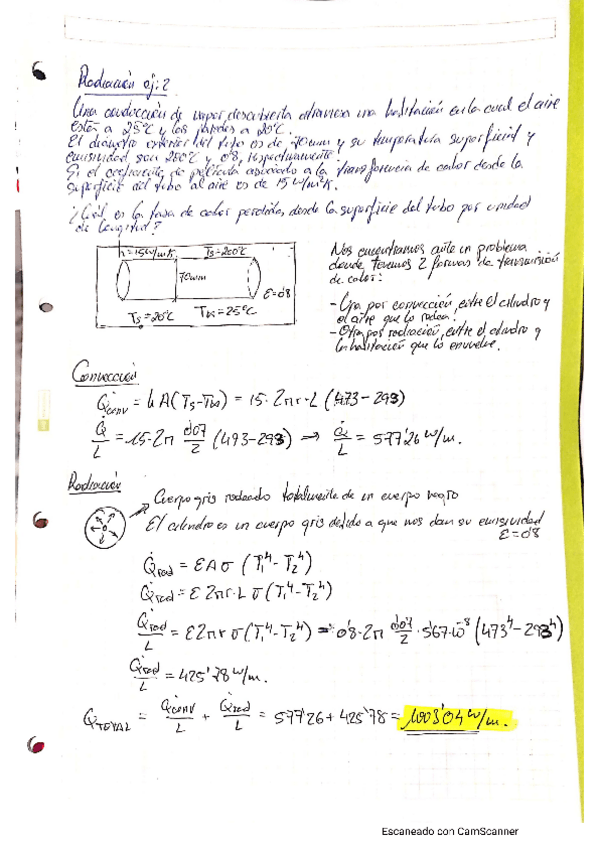 Radiación ej: 2
Una conducción de vapor descubierta atraviesa una habitación en la cual el aire
está a 25ºC y las paredes a 20ºC.
El diámetro exterior del tubo es de 70mm y su temperatura superficial y
emisividad son 200ºC y 0'8, respectivamente.
Si el coeficiente de película asociado a la transferencia de calor desde la
superficie del tubo al aire es de 15 W/m²K.
¿Cuál es la tasa de calor perdida, desde la superficie del tubo por unidad
de longitud?
h=15W/m²K Ts=200ºC
70mm
ε=0'8
Ts=20ºC T∞=25ºC
Nos encontramos ante un problema
donde tenemos 2 formas de transmisión
de calor:
- Una por convección, entre el cilindro y
el aire que lo rodea.
- Otra por radiación, entre el cilindro y
la habitación que lo envuelve.
Convección
Q̇conv = h A (Ts-T∞) = 15· 2πr·L (473-293)
Q̇/L = 15·2π 0'07/2 (493-293) ⇒ Q̇/L = 577'26 W/m.
Radiación
Cuerpo gris rodeado totalmente de un cuerpo negro
El cilindro es un cuerpo gris debido a que nos dan su emisividad
ε=0'8
Q̇rad = εAσ (T₁⁴-T₂⁴)
Q̇rad = ε 2πr·L σ (T₁⁴-T₂⁴)
Q̇rad/L = ε2πr σ(T₁⁴-T₂⁴) = 0'8·2π 0'07/2 · 5'67·10⁻⁸ (473⁴-293⁴)
Q̇rad/L = 425'78 W/m.
Q̇TOTAL = Q̇conv/L + Q̇rad/L = 577'26 + 425'78 = 1003'04 W/m.
Escaneado con CamScanner